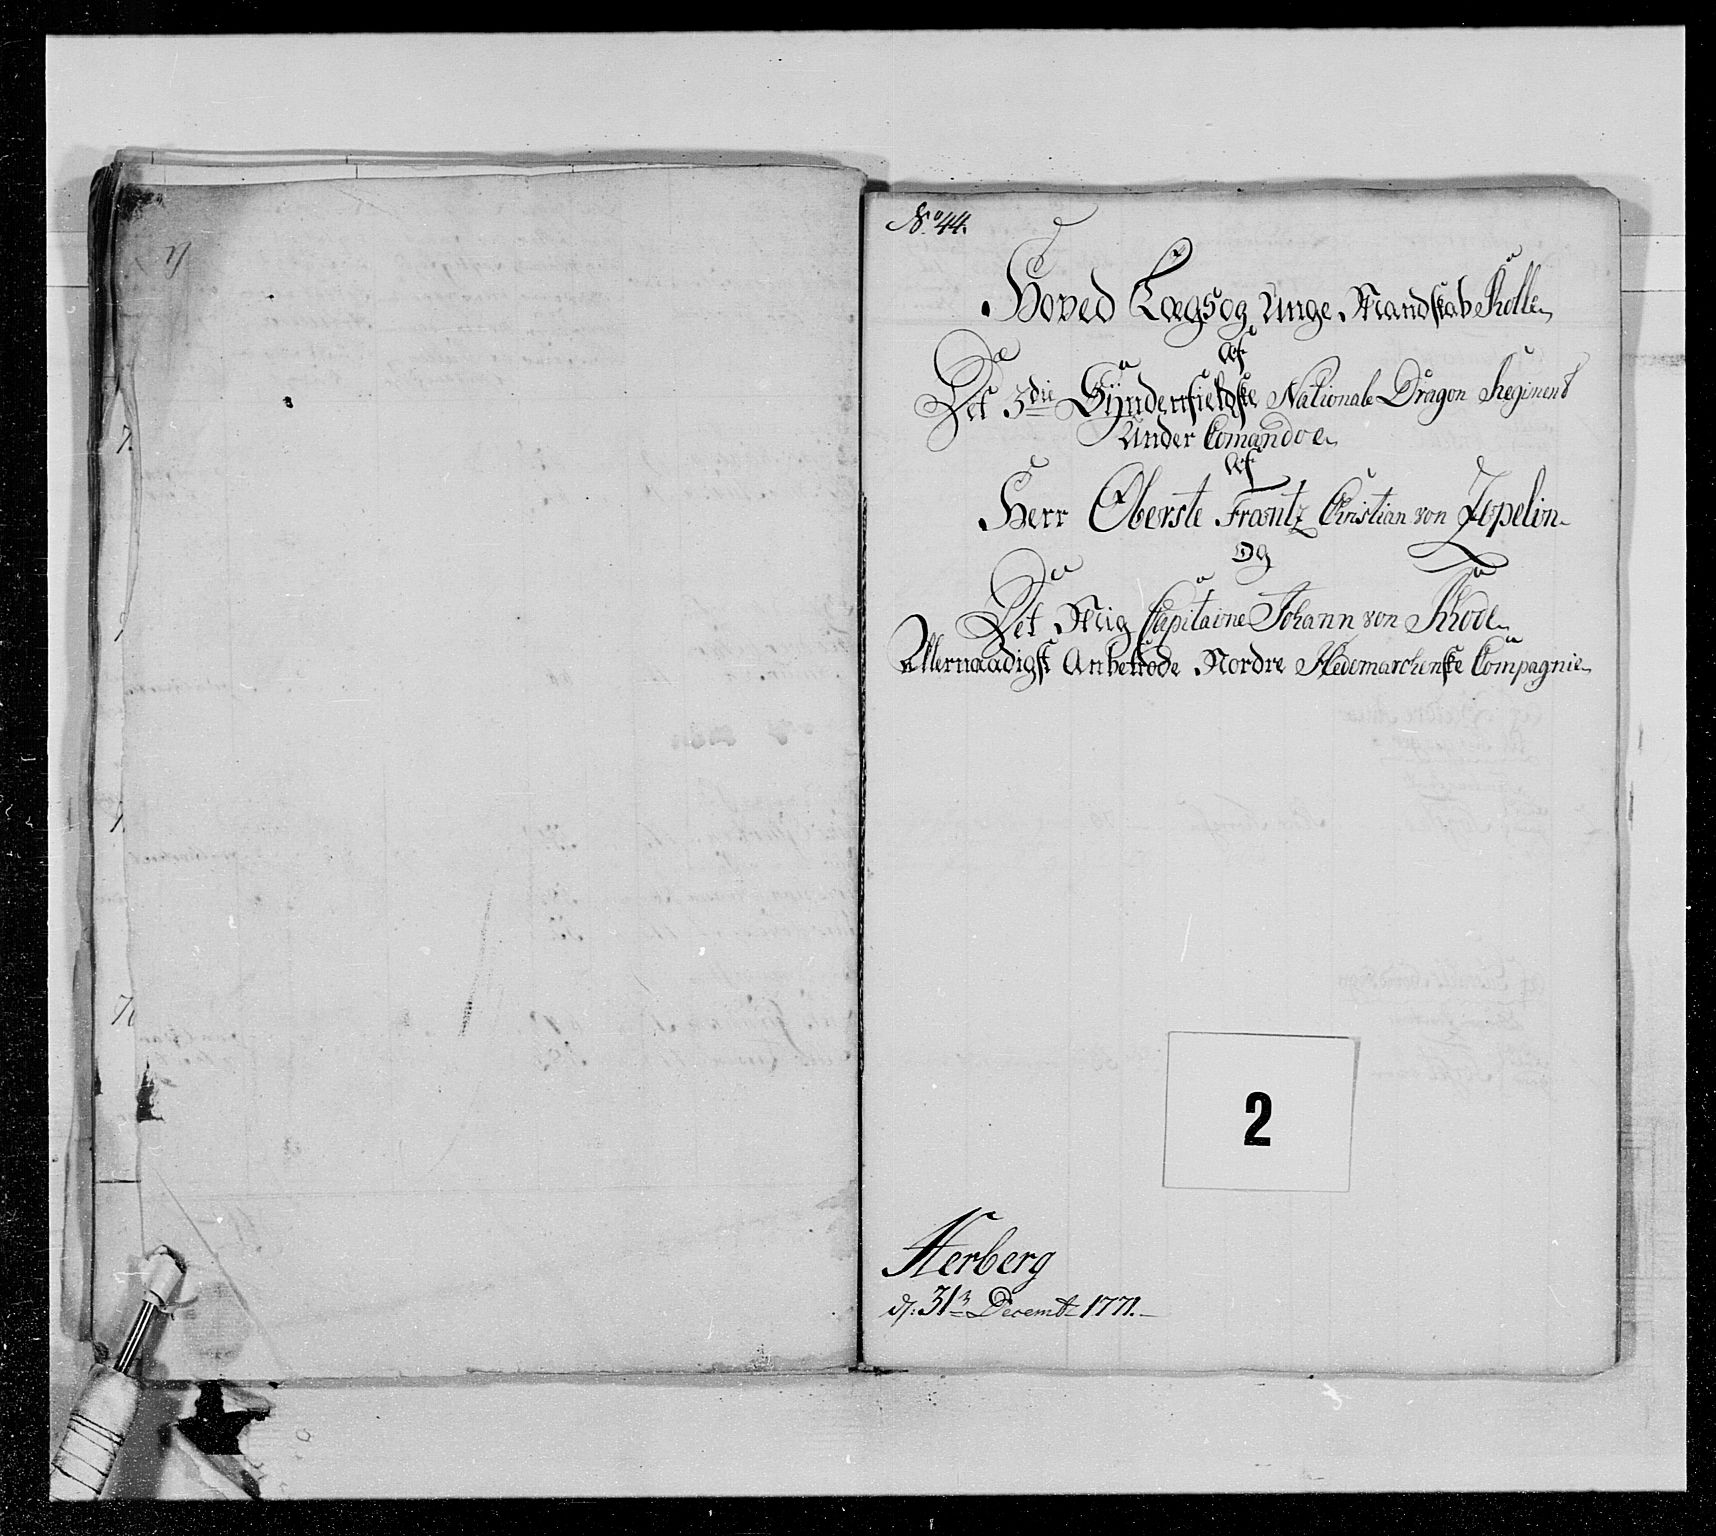 No 44.
Hoved Lægs og Unge Mandskab Rolle
Af
Det 3die Syndenfieldske Nationale Dragon Regiment
Under Comandoe
Af
Herr Oberste Frantz Christian von Zepelin
Og
Det Mig Capitaine Johann von Rhode
Allernaadigst Anbetrode Nordre Hedemarchenske Compagnie
2
Herberg
d: 31 Decembr 1771.